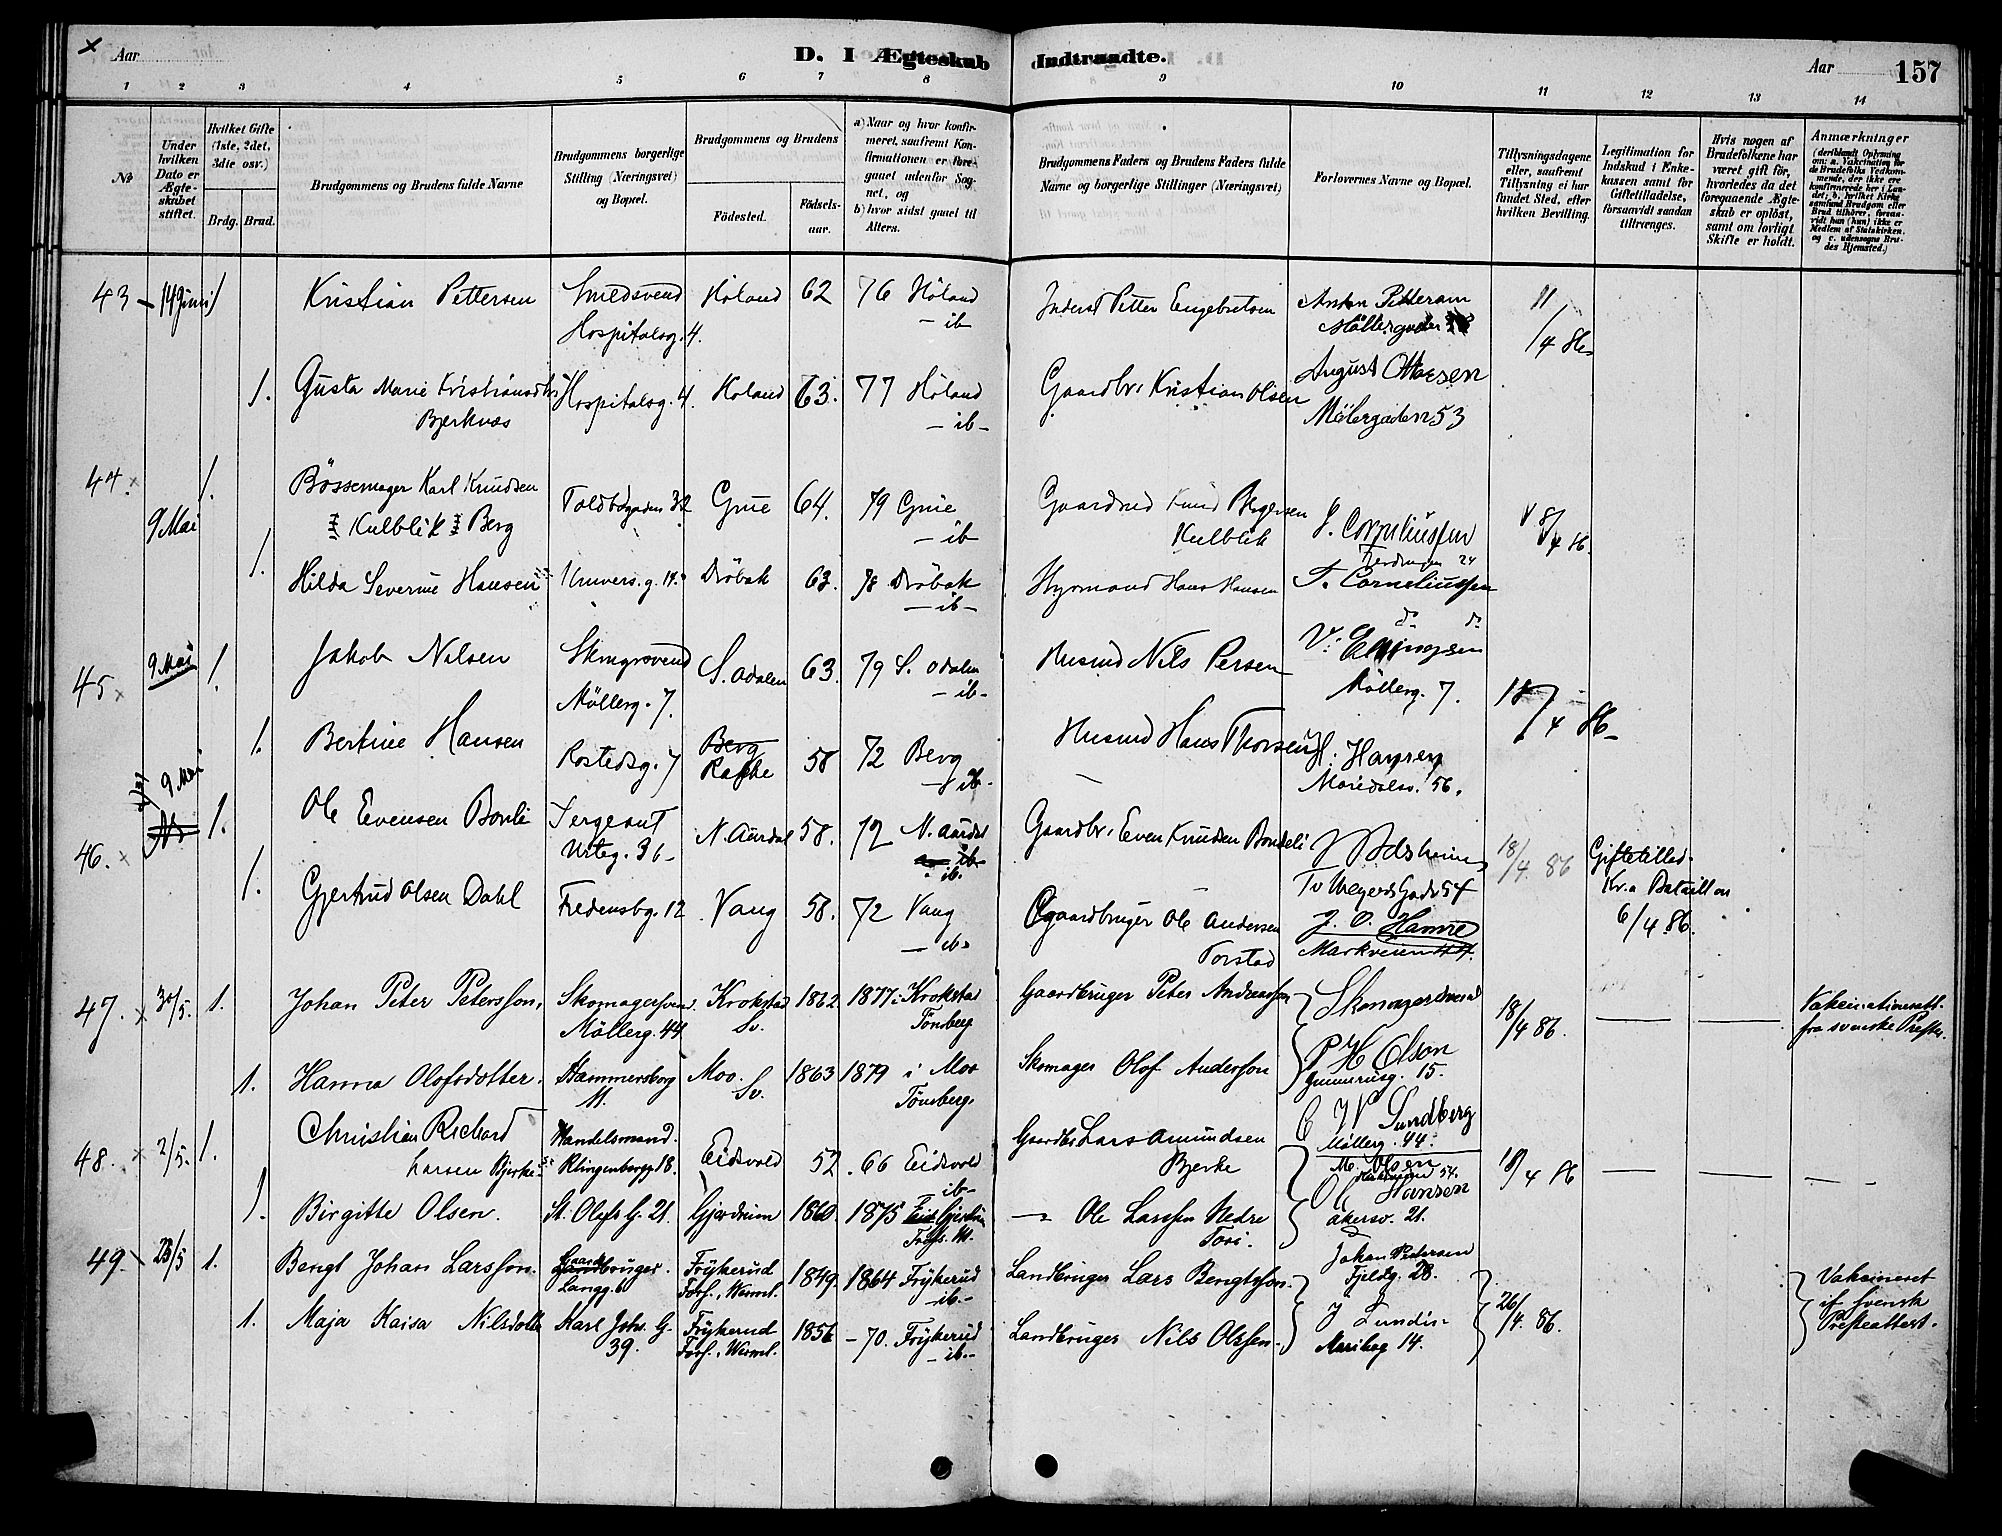 Aar
D. I Ægteskab Indtraadte.
Aar
157
1 2 3 4 5 6 7 8 9 10 11 12 13 14
No
Under hvilken Dato er Ægteskabet stiftet.
Hvilket Gifte (1ste, 2det, 3die osv.)
Brdg. Brud.
Brudgommens og Brudens fulde Navne
Brudgommens borgerlige Stilling (Næringsvei) og Bopæl.
Brudgommens og Brudens
Fødested.
Fødselsaar.
a) Naar og hvor konfirmeret, saafremt Konfirmationen er foregaaet udenfor Sognet, og
b) hvor sidst gaaet til Alters.
Brudgommens Faders og Brudens Faders fulde Navne og borgerlige Stillinger (Næringsvei)
Forlovernes Navne og Bopæl.
Tillysningsdagene eller, saafremt Tillysning ei har fundet Sted, efter hvilken Bevilling.
Legitimation for Indskud i Enkekassen samt for Giftetilladelse, forsaavidt saadan tiltrænges.
Hvis nogen af Brudefolkene har været gift før, hvorledes da det foregaaende Ægteskab er opløst, samt om lovligt Skifte er holdt.
Anmærkninger
(deriblandt Oplysning om: a. Vakcination for de Brudefolks Vedkommende, der ikke ere konfirmerede her i Landet; b. hvilket Kirkesamfund Brudgom eller Brud tilhører, forsaavidt han (hun) ikke er Medlem af Statskirken, og c. udensogns Brudes Hjemsted.)
43 14 Juni 1 Kristian Pettersen Smedsvend Høland 62 76 Høland Inderst Petter Engebretsen Anton Petteram 11/4 86
Hospitalsg. 4. - ib - Møllergaden
1. Gusta Marie Kristiansdtr Hospitalsg. 4. Høland 63. 77 Høland Gaardbr. Kristian Olsen August Ottesen
Bjerknæs - ib - Møllergaden 53
44. 1. Bøssemager Karl Knudsen Toldbodgaden 32 Grue 64. 79 Grue Gaardmd Knud Bergersen J. Corneliussen 18/4 86.
9 Mai Kulblik Berg - ib - Kulblik 24
1. Hilda Severine Hansen Univers. g. 14. Drøbak 63. 78 Drøbak Styrmand Hans Hansen T. Corneliussen
- ib - do do
45 9. Mai 1. Jakob Nilsen Skrædersvend S. Odalen 63. 79 S. Odalen Husmd Nils Persen V. Ellingsen 18/4 86
Møllerg. 7. - ib - Møllerg. 7.
1. Bertine Hansen Rostedsg. 7 Berg 58 72 Berg Husmd Hans Thorsen H. Hansen
Rakke - ib - Maridalsv. 56.
46. 9 Mai 1. Ole Evensen Bonli Sergeant N. Aurdal 58. 72 N. Aurdal Gaardbr. Even Knudsen Bondeli 18/4 86 Giftetillad.
Urteg. 36 ib. Tv Meyers Gade 54 Kr.a Bataillon
1. Gjertrud Olsen Dahl Fredensbg. 12 Vang 58. 72 Vang Gaardbruger Ole Andersen J. O. Hamre 6/4 86.
- ib - Torstad Markveien
47. 30/5. 1. Johan Peter Petersson, Skomagersvend. Krokstad 1862 1877 i Krokstad Gaardbruger Peter Andreasson Skomagersvend 18/4 86. Vakcinationsatt.
Møllerg. 44 Sv. Tönsberg fra svenske Prester.
1. Hanna Olofsdotter. Hammersborg Moo. 1863 1879 i Moo Skomager Olof Anderson P. H. Olson
11. Sv. Tönsberg. Gruneriusg. 15.
48. 2/5. 1. Christian Richard Handelsmand. Eidsvold 52 . 66 Eidsvold Gaardbr Lars Amundsen C W Sundberg 18/4 86
Larsen Bjerke Klingenbergg 18. - ib - Bjerke Møllerg. 44.
M. Olsen
1. Birgitte Olsen. St. Olafs G. 21. Gjerdrum 1860. 1875 Gjerdrum - Ole Larssen Nedre Hansen
Trefs. M. Tori. Akersv. 21.
49. 23/5 1. Bengt Johan Larsson. Gaardbruger. Frykerud 1849 1864 Frykerud Landbruger Lars Bengtsson. Johan Petersen 26/4. 86. Vakcineret
Langg. 6 Fors., Wermt. - ib. - Fjeldg. 28. if Svensk
1. Maja Kaisa Nilsdotter Karl Johs. G. Frykerud 1856 - 70. Frykerud Landbruger Nils Olssen. J Lundin Presteattest.
39. Fors., Wermt. - ib. - Maribog 14.